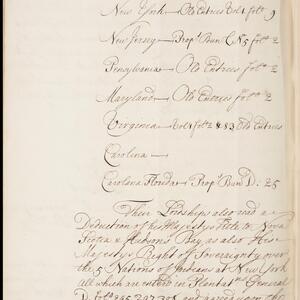 New York — Old Entries Vol: 1 fol: 9
New Jersey — Prop: Bun: C N: 5 fol: 2
Pensylvania — Old Entries fol: 2
Maryland — Old Entries fol: 2
Virginia — Vol: 1 fol: 2 & 83 Old Entries
Carolina —
Carolana Florida — Prop: Bun: D: 25
Their Lordships also read a
Deduction of his Majesty's Title to Nova
Scotia & Hudsons Bay as also His
Majesty's Right of Sovereignty over
the 5 Nations of Indians at New York
All which are entred in Plantat: General
D. fol: